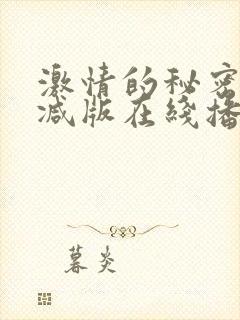 激情的秘密
减版在线播
暮炎